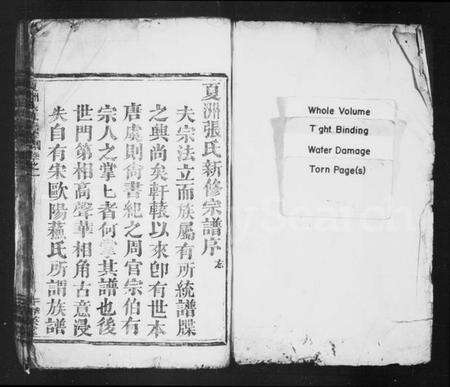 夏洲張氏新修宗譜序
夫宗法立而族屬有所統譜牒
之興尚矣軒轅以來卽有世本
唐虞則尙書紀之周官宗伯有
宗人之掌匕者何掌其譜也後
世門第相高聲華相角古意浸
失自有宋歐陽蘓氏所謂族譜
Whole Volume
T ght Binding
Water Damage
Torn Page(s)